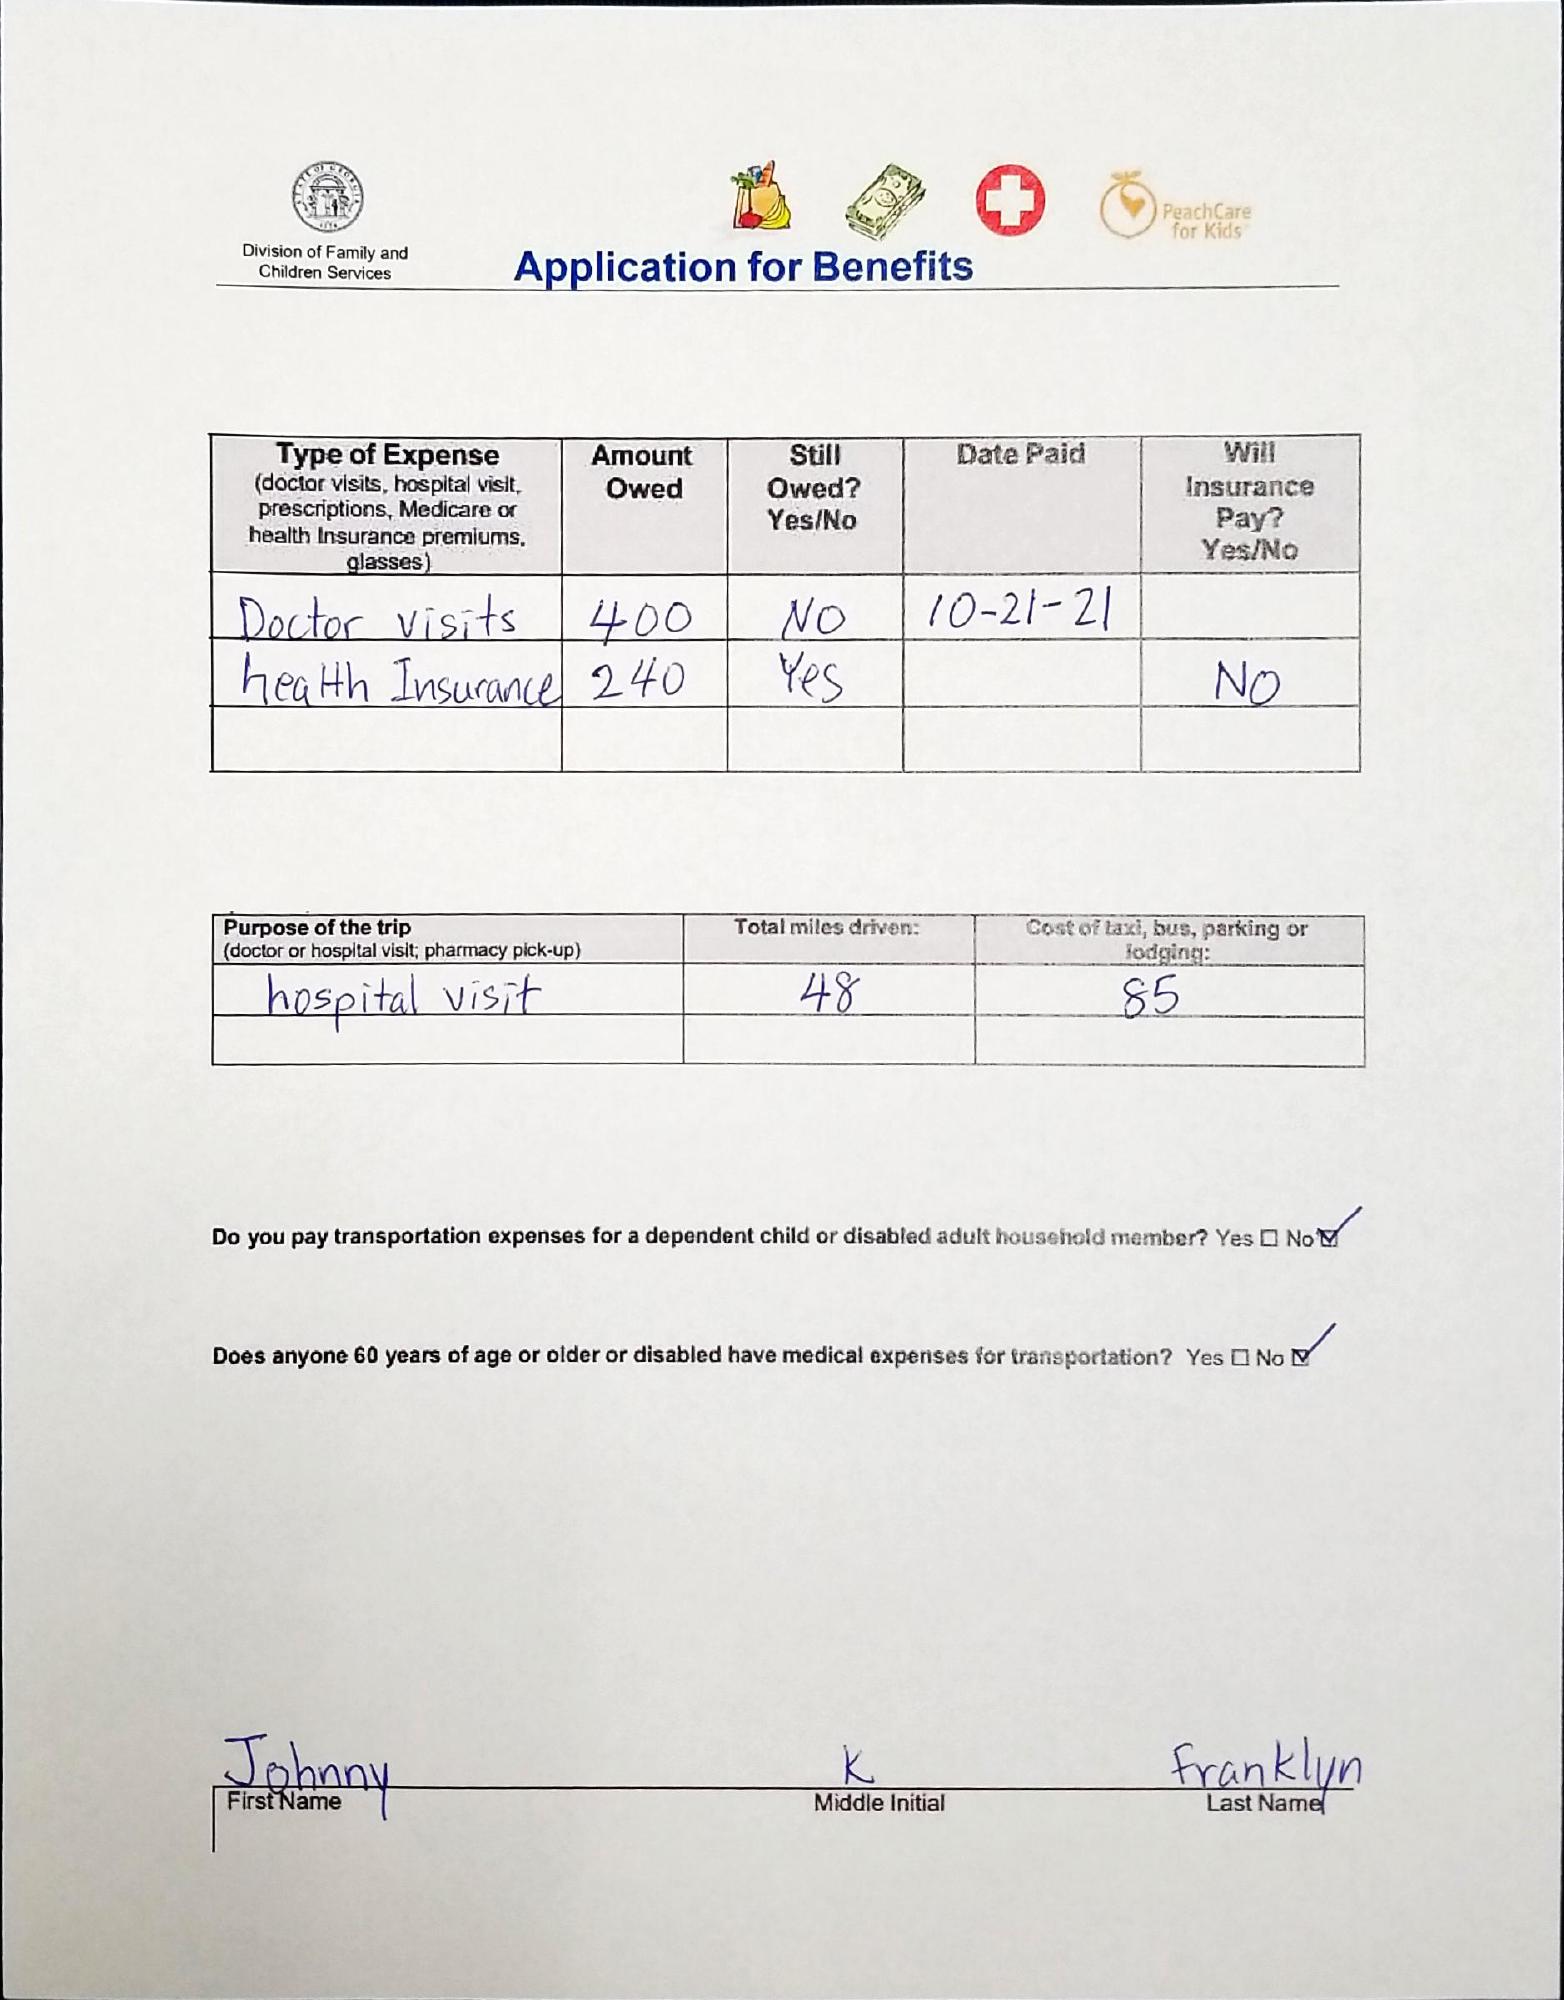 STATE OF GEORGIA
1776
PeachCare
for Kids
Division of Family and
Children Services
Application for Benefits
Type of Expense
(doctor visits, hospital visit,
prescriptions, Medicare or
health Insurance premiums,
glasses)
Amount
Owed
Still
Owed?
Yes/No
Date Paid
Will
Insurance
Pay?
Yes/No
Doctor visits 400 NO 10-21-21
health Insurance 240 Yes NO
Purpose of the trip
(doctor or hospital visit; pharmacy pick-up)
Total miles driven:
Cost of taxi, bus, parking or
lodging:
hospital visit 48 85
Do you pay transportation expenses for a dependent child or disabled adult household member? Yes ☐ No ☑
Does anyone 60 years of age or older or disabled have medical expenses for transportation? Yes ☐ No ☑
Johnny K Franklyn
First Name Middle Initial Last Name